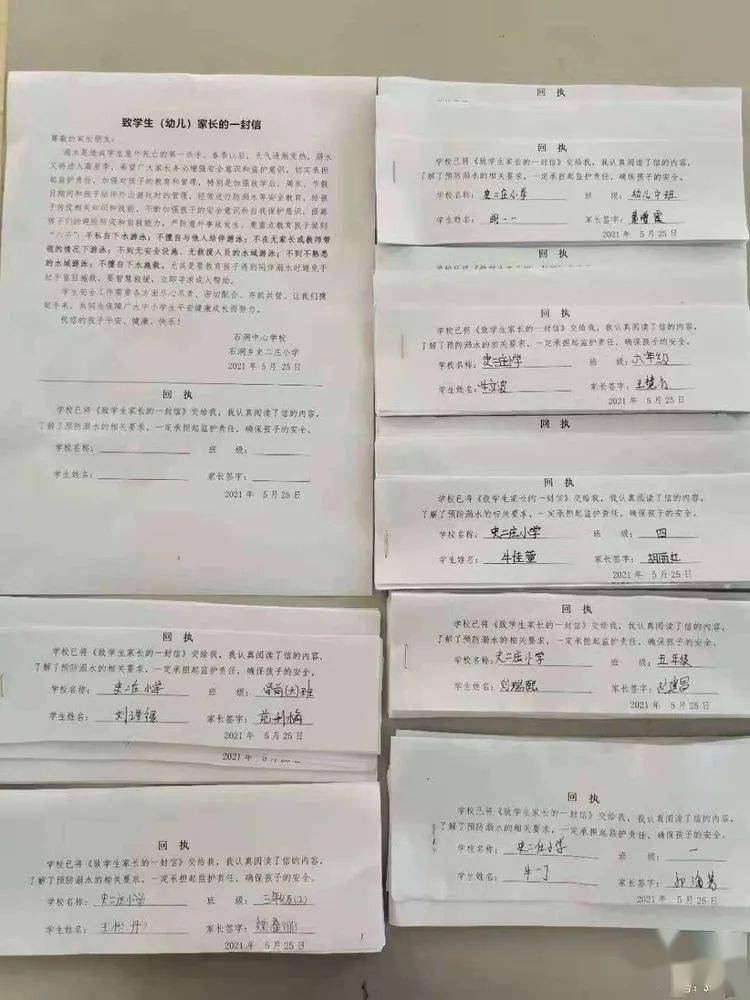 致学生（幼儿）家长的一封信
尊敬的家长朋友：
溺水是造成学生意外死亡的第一杀手。春季以后，天气逐渐变热，溺水
又将进入高发季，希望广大家长务必增强安全意识和监护意识，切实承担
起监护责任，加强对孩子的教育和管理，特别是加强放学后、周末、节假
日期间和孩子结伴外出游玩时的管理，经常进行防溺水等安全教育，给孩
子传授相关知识和技能，不断加强孩子的安全意识和自我保护意识，提高
孩子们的避险防灾和自救能力，严防意外事故发生。要重点教育孩子做到
“六不”：不私自下水游泳；不擅自与他人结伴游泳；不在无家长或教师带
领的情况下游泳；不到无安全设施、无救援人员的水域游泳；不到不熟悉
的水域游泳；不擅自下水施救。尤其是要教育孩子遇到同伴溺水时避免手
拉手盲目施救，要智慧救援，立即寻求成人帮助。
学生安全工作需要各方面尽心尽责、密切配合、齐抓共管。让我们携
起手来，共同为保障广大中小学生平安健康成长而努力。
祝您的孩子平安、健康、快乐！
石洞中心学校
石洞乡史二庄小学
2021年 5月 25日
回 执
学校已将《致学生家长的一封信》交给我，我认真阅读了信的内容，
了解了预防溺水的相关要求，一定承担起监护责任，确保孩子的安全。
学校名称： 班 级：
学生姓名： 家长签字：
2021年 5月25日
1
回 执
回 执
学校已将《致学生家长的一封信》交给我，我认真阅读了信的内容，
了解了预防溺水的相关要求，一定承担起监护责任，确保孩子的安全。
学校名称：史二庄小学 班 级：幼儿中班
学生姓名：明一一 家长签字：
2021年 5月25日
回 执
学校已将《致学生家长的一封信》交给我，我认真阅读了信的内容，
了解了预防溺水的相关要求，一定承担起监护责任，确保孩子的安全。
学校名称：史二庄小学 班 级：六年级
学生姓名：牛文波 家长签字：
2021年 5月25日
回 执
回 执
学校已将《致学生家长的一封信》交给我，我认真阅读了信的内容，
了解了预防溺水的相关要求，一定承担起监护责任，确保孩子的安全。
学校名称：史二庄小学 班 级：四
学生姓名：牛佳萱 家长签字：胡丽红
2021年 5月25日
回 执
学校已将《致学生家长的一封信》交给我，我认真阅读了信的内容，
了解了预防溺水的相关要求，一定承担起监护责任，确保孩子的安全。
学校名称：史二庄小学 班 级：五年级
学生姓名：刘瑞熙 家长签字：刘建国
2021年 5月25日
回 执
学校已将《致学生家长的一封信》交给我，我认真阅读了信的内容，
了解了预防溺水的相关要求，一定承担起监护责任，确保孩子的安全。
学校名称：史二庄小学 班 级：学前(大)班
学生姓名：刘洪绿 家长签字：范利梅
2021年 5月25日
回 执
学校已将《致学生家长的一封信》交给我，我认真阅读了信的内容，
了解了预防溺水的相关要求，一定承担起监护责任，确保孩子的安全。
学校名称：史二庄小学 班 级：一
学生姓名：牛一丁 家长签字：
2021年 5月25日
回 执
学校已将《致学生家长的一封信》交给我，我认真阅读了信的内容，
了解了预防溺水的相关要求，一定承担起监护责任，确保孩子的安全。
学校名称：史二庄小学 班 级：二年级(2)
学生姓名： 家长签字：
2021年 5月25日
1